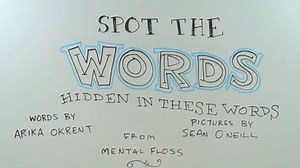 SPOT THE
WORDS
HIDDEN IN THESE WORDS
WORDS BY
ARIKA OKRENT
PICTURES BY
SEAN O'NEILL
FROM
MENTAL FLOSS